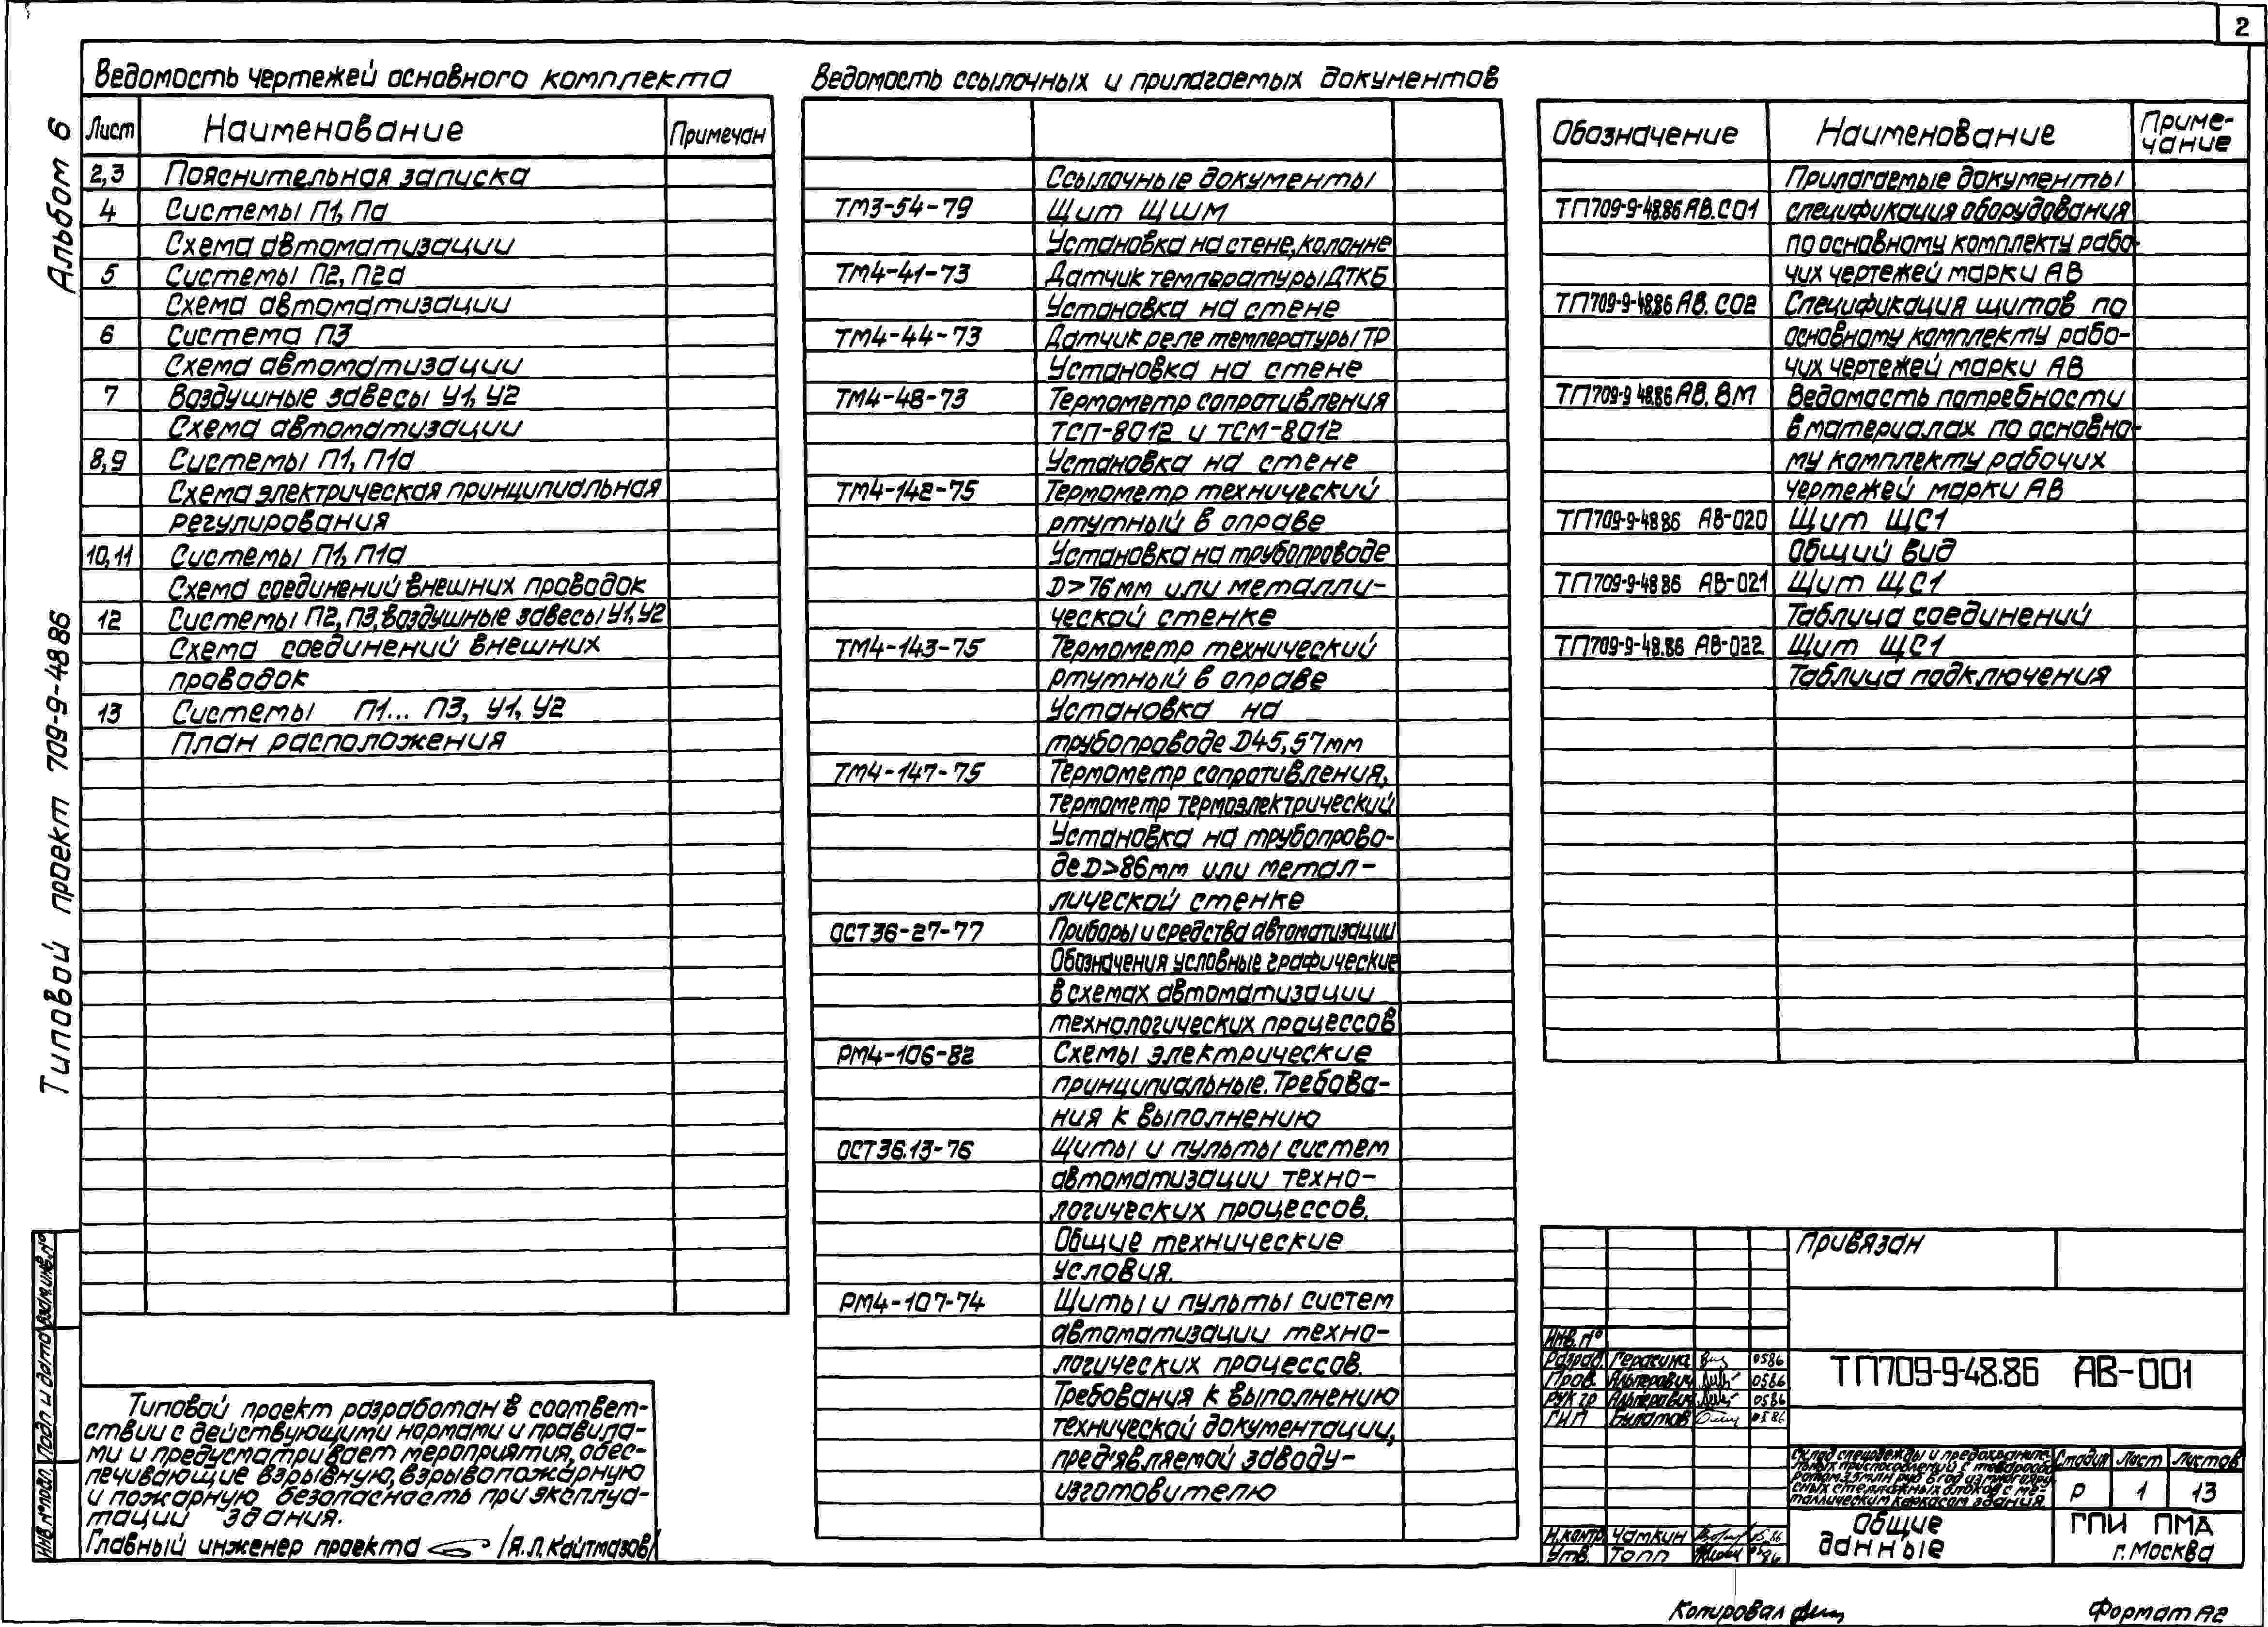 2
Альбом 6
Типовой проект 709-9-48 86
Ведомость чертежей основного комплекта
Лист Наименование Примечан
2,3 Пояснительная записка
4 Системы П1, Па
Схема автоматизации
5 Системы П2, П2а
Схема автоматизации
6 Система П3
Схема автоматизации
7 Воздушные завесы У1, У2
Схема автоматизации
8,9 Системы П1, П1а
Схема электрическая принципиальная
регулирования
10,11 Системы П1, П1а
Схема соединений внешних проводок
12 Системы П2, П3, воздушные завесы У1, У2
Схема соединений внешних
проводок
13 Системы П1... П3, У1, У2
План расположения
Типовой проект разработан в соответ-
ствии с действующими нормами и правила-
ми и предусматривает мероприятия, обес-
печивающие взрывную, взрывопожарную
и пожарную безопасность при эксплуа-
тации здания.
Главный инженер проекта /Я.Л.Кайтмазов/
Ведомость ссылочных и прилагаемых документов
Ссылочные документы
ТМ3-54-79 Щит ЩШМ
Установка на стене, колонне
ТМ4-41-73 Датчик температуры ДТКБ
Установка на стене
ТМ4-44-73 Датчик реле температуры ТР
Установка на стене
ТМ4-48-73 Термометр сопротивления
ТСП-8012 и ТСМ-8012
Установка на стене
ТМ4-142-75 Термометр технический
ртутный в оправе
Установка на трубопроводе
D>76мм или металли-
ческой стенке
ТМ4-143-75 Термометр технический
ртутный в оправе
Установка на
трубопроводе D45, 57мм
ТМ4-147-75 Термометр сопротивления,
термометр термоэлектрический
Установка на трубопрово-
де D>86мм или метал-
лической стенке
ОСТ36-27-77 Приборы и средства автоматизации
Обозначения условные графические
в схемах автоматизации
технологических процессов
РМ4-106-82 Схемы электрические
принципиальные. Требова-
ния к выполнению
ОСТ36.13-76 Щиты и пульты систем
автоматизации техно-
логических процессов.
Общие технические
условия.
РМ4-107-74 Щиты и пульты систем
автоматизации техно-
логических процессов.
Требования к выполнению
технической документации,
пред'являемой заводу-
изготовителю
Обозначение Наименование Приме-
чание
Прилагаемые документы
ТП709-9-48.86 АВ.СО1 спецификация оборудования
по основному комплекту рабо-
чих чертежей марки АВ
ТП709-9-48.86 АВ.СО2 Спецификация щитов по
основному комплекту рабо-
чих чертежей марки АВ
ТП709-9 48.86 АВ.ВМ Ведомость потребности
в материалах по основно-
му комплекту рабочих
чертежей марки АВ
ТП709-9-48 86 АВ-020 Щит ЩС1
Общий вид
ТП709-9-48 86 АВ-021 Щит ЩС1
Таблица соединений
ТП709-9-48.86 АВ-022 Щит ЩС1
Таблица подключения
Привязан
Инв. №
Разраб. Герасина 0586
Пров. Альперович 0586
Рук гр Альперович 0586
ГИП Булатов 0586
ТП709-9-48.86 АВ-001
Склад спецодежды и предохраните-
льных приспособлений с товарообо-
ротом 3,5 млн руб в год из многоярус-
сных стеллажных блоков с ме-
таллическим каркасом здания
Стадия Лист Листов
Р 1 13
Н.контр. Чаткин 05.86
Утв. Топп
Общие
данные
ГПИ ПМА
г. Москва
Инв № подл. Подп и дата Взам.инв.№
Копировал
Формат А2